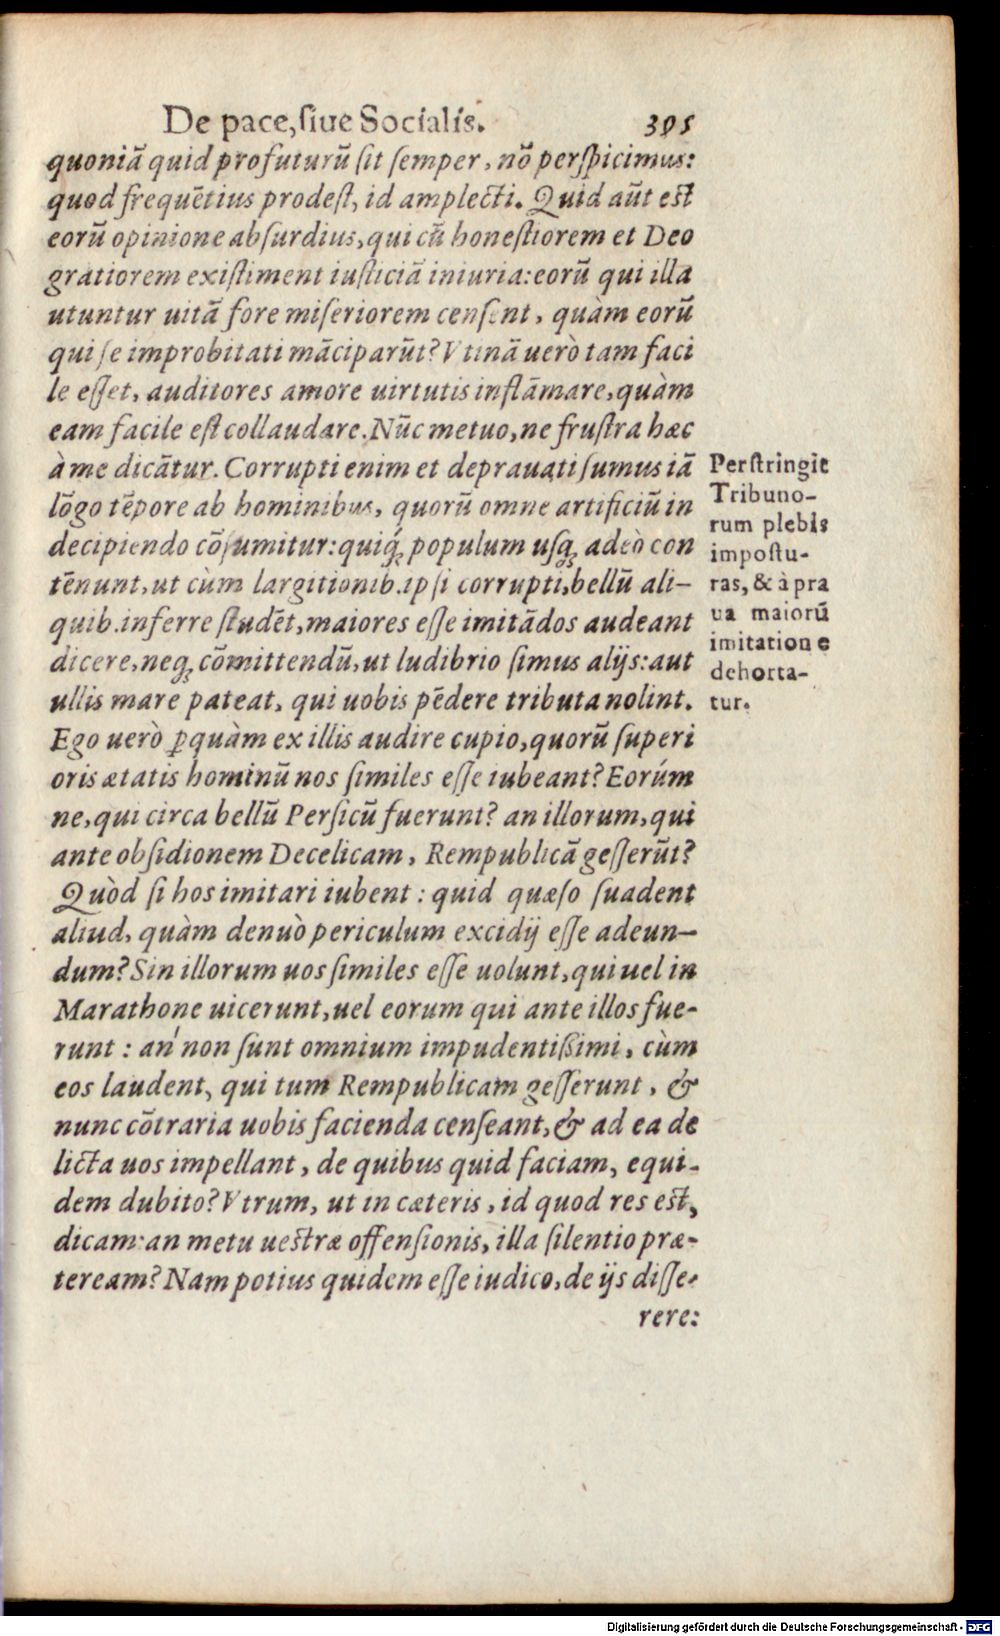 De pace, ſiue Socialis. 395
quoniã quid profuturũ ſit ſemper, nõ perſpicimus:
quod frequẽtius prodeſt, id amplecti. Quid aũt est
eorũ opinione abſurdius, qui cũ honeſtiorem et Deo
gratiorem exiſtiment iuſticiã iniuria: eorũ qui illa
utuntur uitã fore miſeriorem cenſent, quàm eorũ
qui ſe improbitati mãciparũt? Vtinã uerò tam faci
le eſſet, auditores amore uirtutis inflãmare, quàm
eam facile eſt collaudare. Nũc metuo, ne fruſtra hæc
à me dicãtur. Corrupti enim et deprauati ſumus iã
lõgo tẽpore ab hominibus, quorũ omne artificiũ in
decipiendo cõſumitur: quiq́ꝫ populum uſqꝫ adeò con
tẽnunt, ut cùm largitionib. ipſi corrupti, bellũ ali-
quib. inferre ſtudẽt, maiores eſſe imitãdos audeant
dicere, neqꝫ cõmittendũ, ut ludibrio ſimus alijs: aut
ullis mare pateat, qui uobis pẽdere tributa nolint.
Ego uerò ꝑquàm ex illis audire cupio, quorũ ſuperi
oris ætatis hominũ nos ſimiles eſſe iubeant? Eorúm
ne, qui circa bellũ Perſicũ fuerunt? an illorum, qui
ante obſidionem Decelicam, Rempublicã geſſerũt?
Quòd ſi hos imitari iubent: quid quæſo ſuadent
aliud, quàm denuò periculum excidij eſſe adeun-
dum? Sin illorum uos ſimiles eſſe uolunt, qui uel in
Marathone uicerunt, uel eorum qui ante illos fue-
runt: an' non ſunt omnium impudentißimi, cùm
eos laudent, qui tum Rempublicam geſſerunt, &
nunc cõtraria uobis facienda cenſeant, & ad ea de
licta uos impellant, de quibus quid faciam, equi-
dem dubito? Vtrum, ut in cæteris, id quod res est,
dicam: an metu uestræ offenſionis, illa ſilentio præ-
teream? Nam potius quidem eſſe iudico, de ijs diſſe-
rere:
Perſtringit
Tribuno-
rum plebis
impoſtu-
ras, & à pra
ua maiorũ
imitatione
dehorta-
tur.
Digitalisierung gefördert durch die Deutsche Forschungsgemeinschaft - DFG